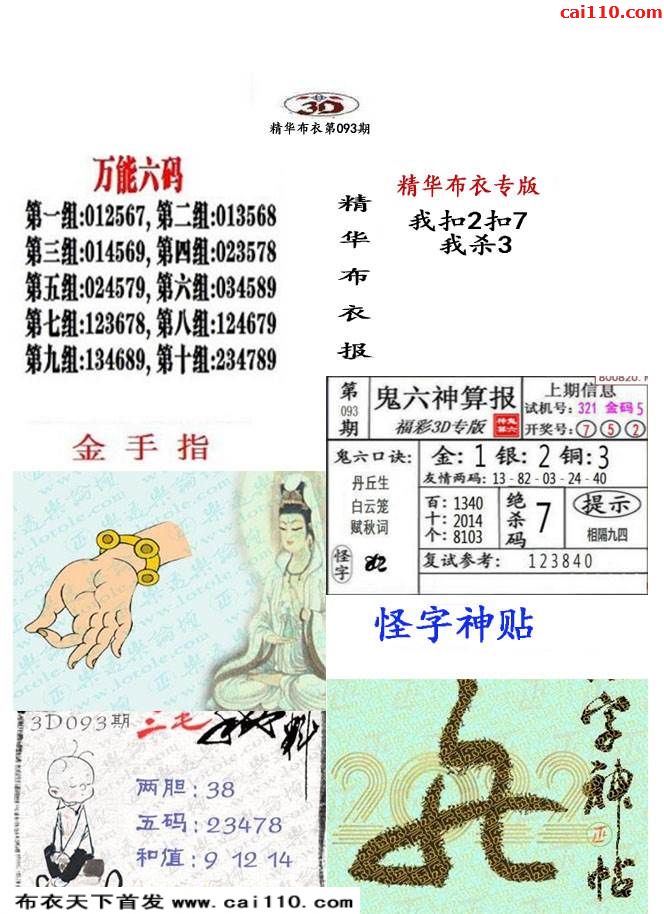 cai110.com
3D
精华布衣第093期
万能六码
第一组:012567, 第二组:013568
第三组:014569, 第四组:023578
第五组:024579, 第六组:034589
第七组:123678, 第八组:124679
第九组:134689, 第十组:234789
精华布衣报
精华布衣专版
我扣2扣7
我杀3
第093期
鬼六神算报
福彩3D专版
上期信息
试机号: 321 金码 5
开奖号: 7 5 2
鬼六口诀:
丹丘生
白云笼
赋秋词
怪字
金: 1 银: 2 铜: 3
友情两码: 13-82-03-24-40
百: 1340
十: 2014
个: 8103
绝杀码
7
提示
相隔九四
复试参考: 123840
金手指
怪字神贴
3D093期
三毛
两胆: 38
五码: 23478
和值: 9 12 14
2022
字神帖
布衣天下首发 www.cai110.com